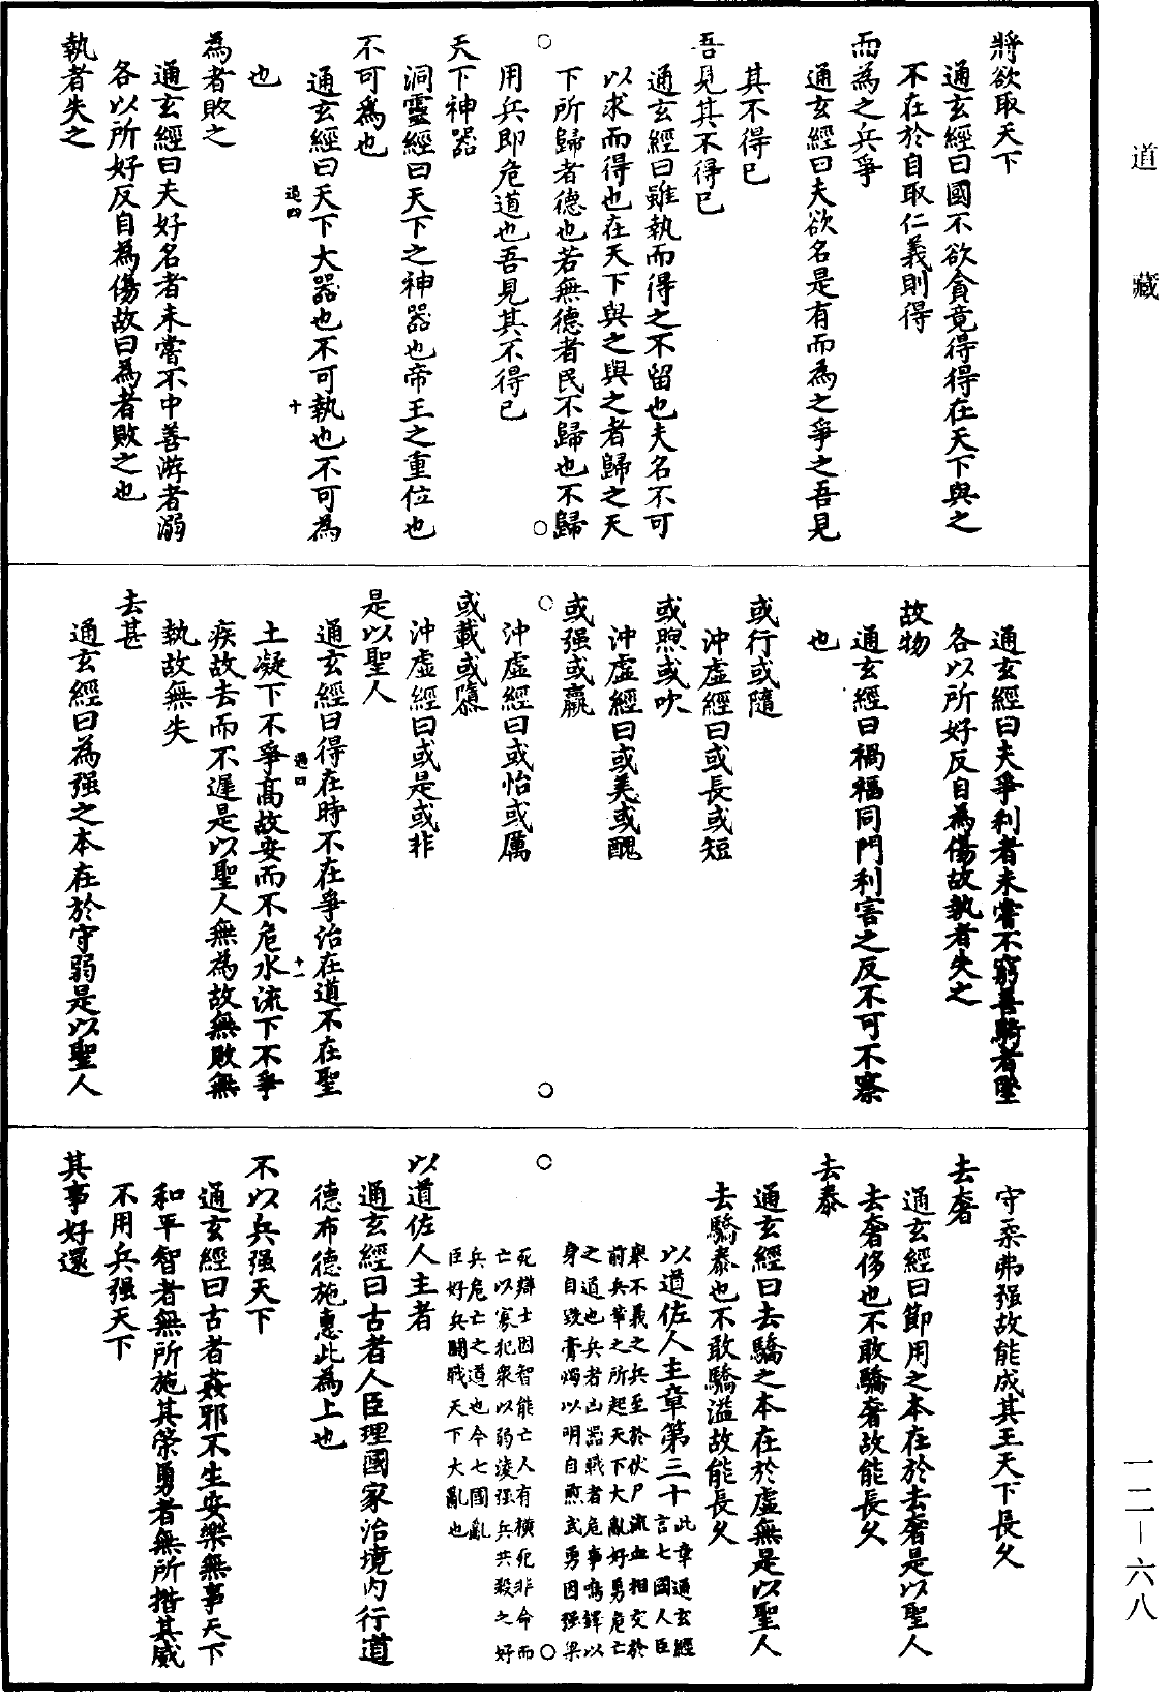 道藏
將欲取天下
通玄經曰國不欲貪竟得得在天下與之
不在於自取仁義則得
而為之兵爭
通玄經曰夫欲名是有而為之爭之吾見
其不得已
吾見其不得已
通玄經曰雖執而得之不留也夫名不可
以求而得也在天下與之與之者歸之天
下所歸者德也若無德者民不歸也不歸
用兵即危道也吾見其不得已
天下神器
洞靈經曰天下之神器也帝王之重位也
不可為也
通玄經曰天下大器也不可執也不可為
過四 十
也
為者敗之
通玄經曰夫好名者未嘗不中善游者溺
各以所好反自為傷故曰為者敗之也
執者失之
通玄經曰夫爭利者未嘗不窮善騎者墜
各以所好反自為傷故執者失之
故物
通玄經曰禍福同門利害之反不可不察
也
或行或隨
沖虛經曰或長或短
或煦或吹
沖虛經曰或美或醜
或强或羸
沖虛經曰或怡或厲
或載或隳
沖虛經曰或是或非
是以聖人
通玄經曰得在時不在爭治在道不在聖
過四 十一
土凝下不爭高故安而不危水流下不爭
疾故去而不遲是以聖人無為故無敗無
執故無失
去甚
通玄經曰為强之本在於守弱是以聖人
守柔弗强故能成其王天下長久
去奢
通玄經曰節用之本在於去奢是以聖人
去奢侈也不敢驕奢故能長久
去泰
通玄經曰去驕之本在於虛無是以聖人
去驕泰也不敢驕溢故能長久
以道佐人主章第三十
此章通玄經
言七國人臣
舉不義之兵至於伏尸流血相交於
前兵革之所起天下大亂好勇危亡
之道也兵者凶器戰者危事鳴鐸以
身自毀膏燭以明自煎武勇因强梁
死辯士因智能亡人有橫死非命而
亡以寡犯眾以弱淩强兵共殺之好
兵危亡之道也今七國亂
臣好兵鬬戰天下大亂也
以道佐人主者
通玄經曰古者人臣理國家治境內行道
德布德施惠此為上也
不以兵强天下
通玄經曰古者姦邪不生安樂無事天下
和平智者無所施其榮勇者無所措其威
不用兵强天下
其事好還
一二—六八